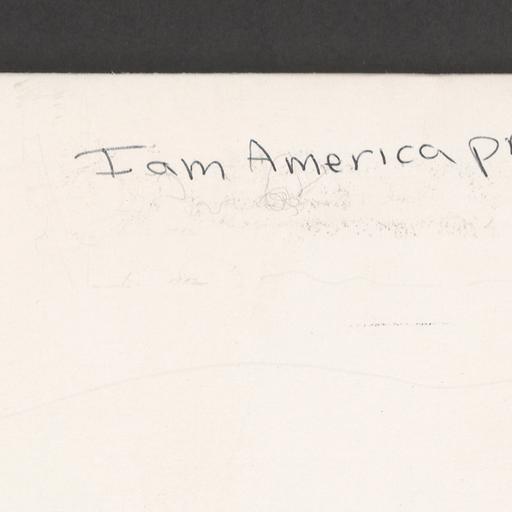 I am America pr